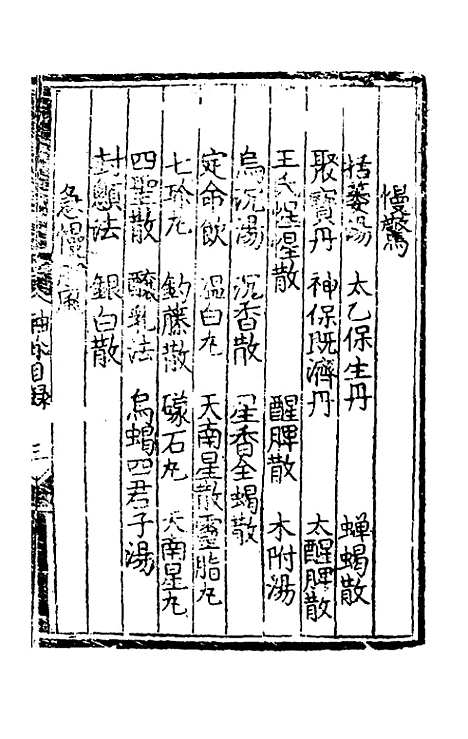 慢驚
括蔞湯 太乙保生丹 蟬蝎散
聚寶丹 神保既濟丹 太醒脾散
王氏惺惺散 醒脾散 木附湯
烏沉湯 沉香散 生香全蝎散
定命飲 溫白丸 天南星散 靈脂丸
七珍丸 鈎藤散 礞石丸 天南星丸
四聖散 釀乳法 烏蝎四君子湯
封顖法 銀白散
急慢驚風
神巧目錄 三